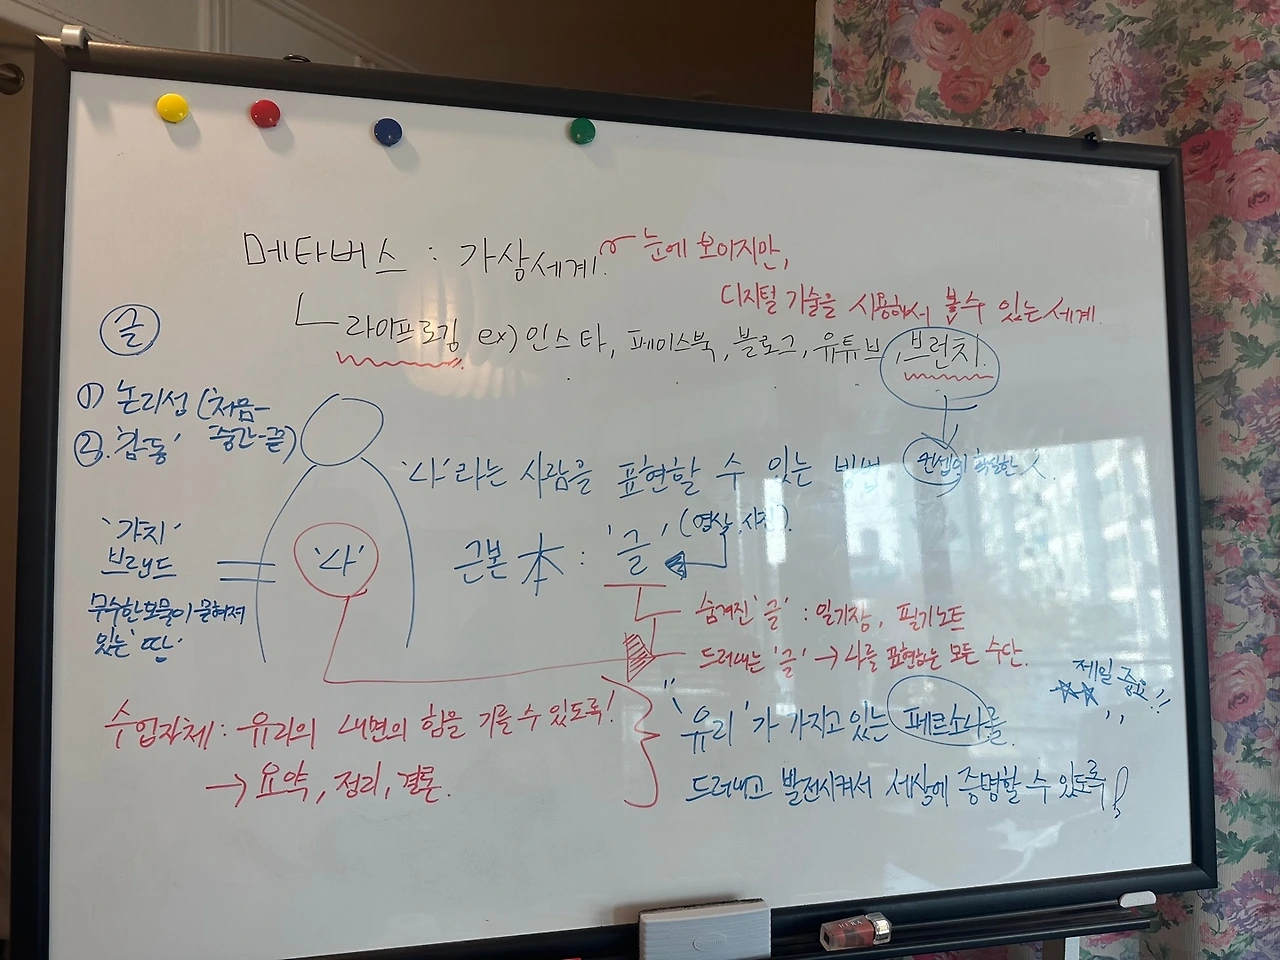 메타버스 : 가상세계.
눈에 보이지만,
디지털 기술을 사용해서 볼 수 있는 세계.
라이프로깅 ex) 인스타, 페이스북, 블로그, 유튜브, 브런치.
글
① 논리성 (처음-
중간-끝)
②. '감동'
'나'라는 사람을 표현할 수 있는 방법
컨셉이 확실한
'가치'
브랜드
무수한 보물이 묻혀져
있는 '땅'
'나'
근본 本 : '글' (영상, 사진).
숨겨진 '글' : 일기장, 필기노트
드러내는 '글' → 나를 표현하는 모든 수단.
제일 중요!!
수업자체 : 유리의 내면의 힘을 기를 수 있도록!
→ 요약, 정리, 결론.
"'유리'가 가지고 있는 페르소나를
드러내고 발전시켜서 세상에 증명할 수 있도록
HERA